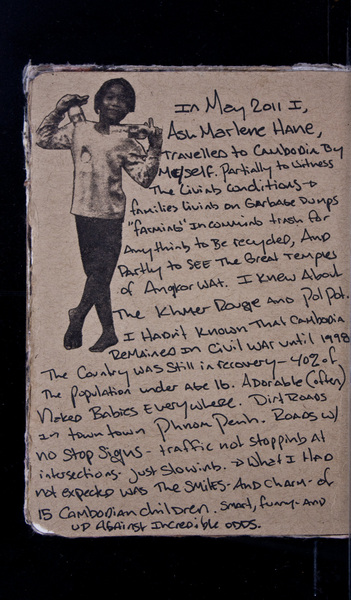 In May 2011 I,
Ash Marlene Hane,
travelled to Cambodia By
Myself. Partially to witness
The Living Conditions →
families living on Garbage Dumps
"farming" incoming trash for
Anything to Be recycled, And
Partly to SEE The Great Temples
of Angkor Wat. I Knew About
The Khmer Rouge and Pol Pot.
I Hadn't Known That Cambodia
Remained In Civil War until 1998
The Country was Still in recovery - 40% of
The population under age 16. Adorable (often)
Naked Babies Everywhere. Dirt Roads
in town town Phnom Penh. Roads w/
no stop signs - traffic not stopping at
intersections - just slowing. → What I Had
not expected was The Smiles - And Charm - of
15 Cambodian children. Smart, funny - and
up Against Incredible odds.